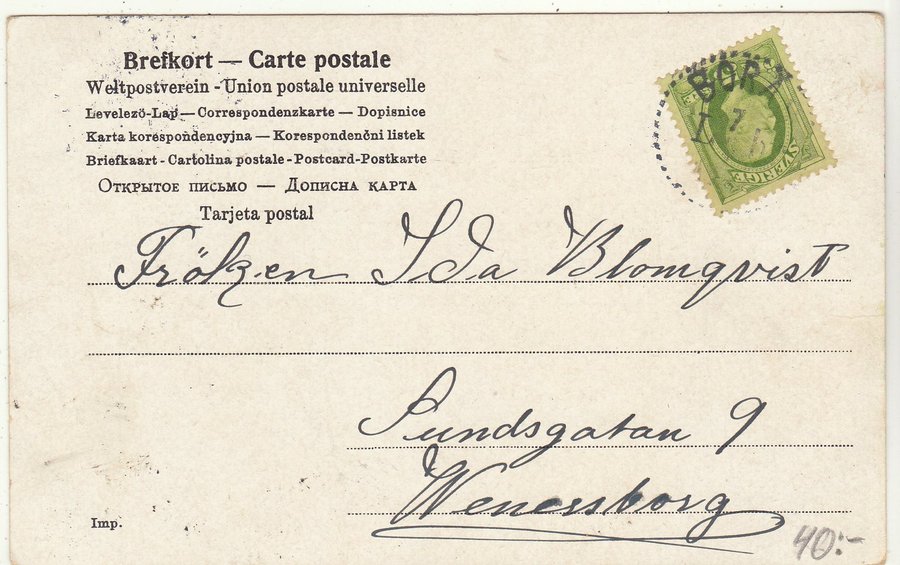 Brefkort — Carte postale
Weltpostverein - Union postale universelle
Levelező-Lap — Correspondenzkarte — Dopisnice
Karta korespondencyjna — Korespondenční listek
Briefkaart - Cartolina postale - Postcard-Postkarte
Открытое письмо — Дописна карта
Tarjeta postal
SVERIGE
Fröken Ida Blomqvist
Sundsgatan 9
Wenersborg
Imp.
40:-